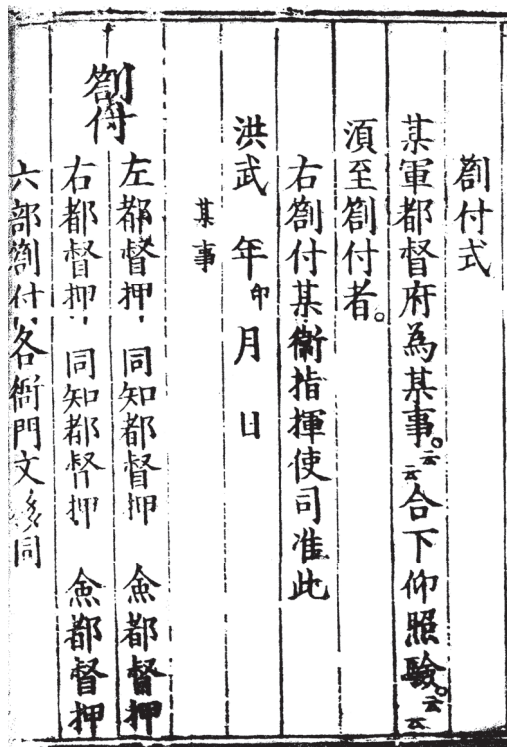 劄付式
某軍都督府為某事。云云合下仰照驗。云云
須至劄付者。
右劄付某衞指揮使司准此
洪武 年印月 日
某事
劄付
左都督押 同知都督押 僉都督押
右都督押 同知都督押 僉都督押
六部劄付各衙門文移同